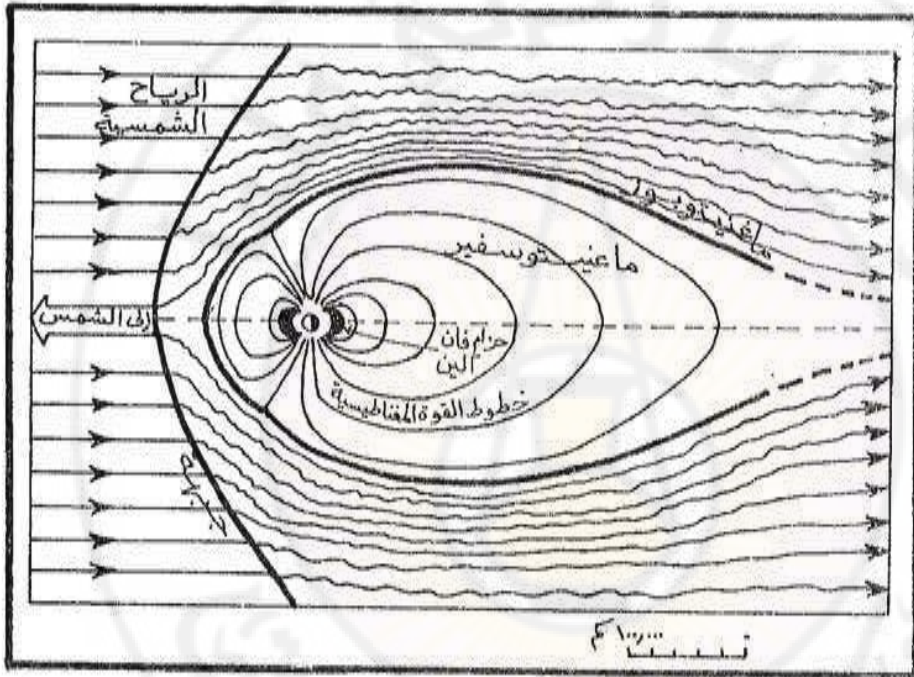 الرياح
الشمسية
ماغنيتوبوز
ماغنيتوسفير
إلى الشمس
حزام فان
الين
خطوط القوة المغناطيسية
جبهة
١٠٠,٠٠٠ كم